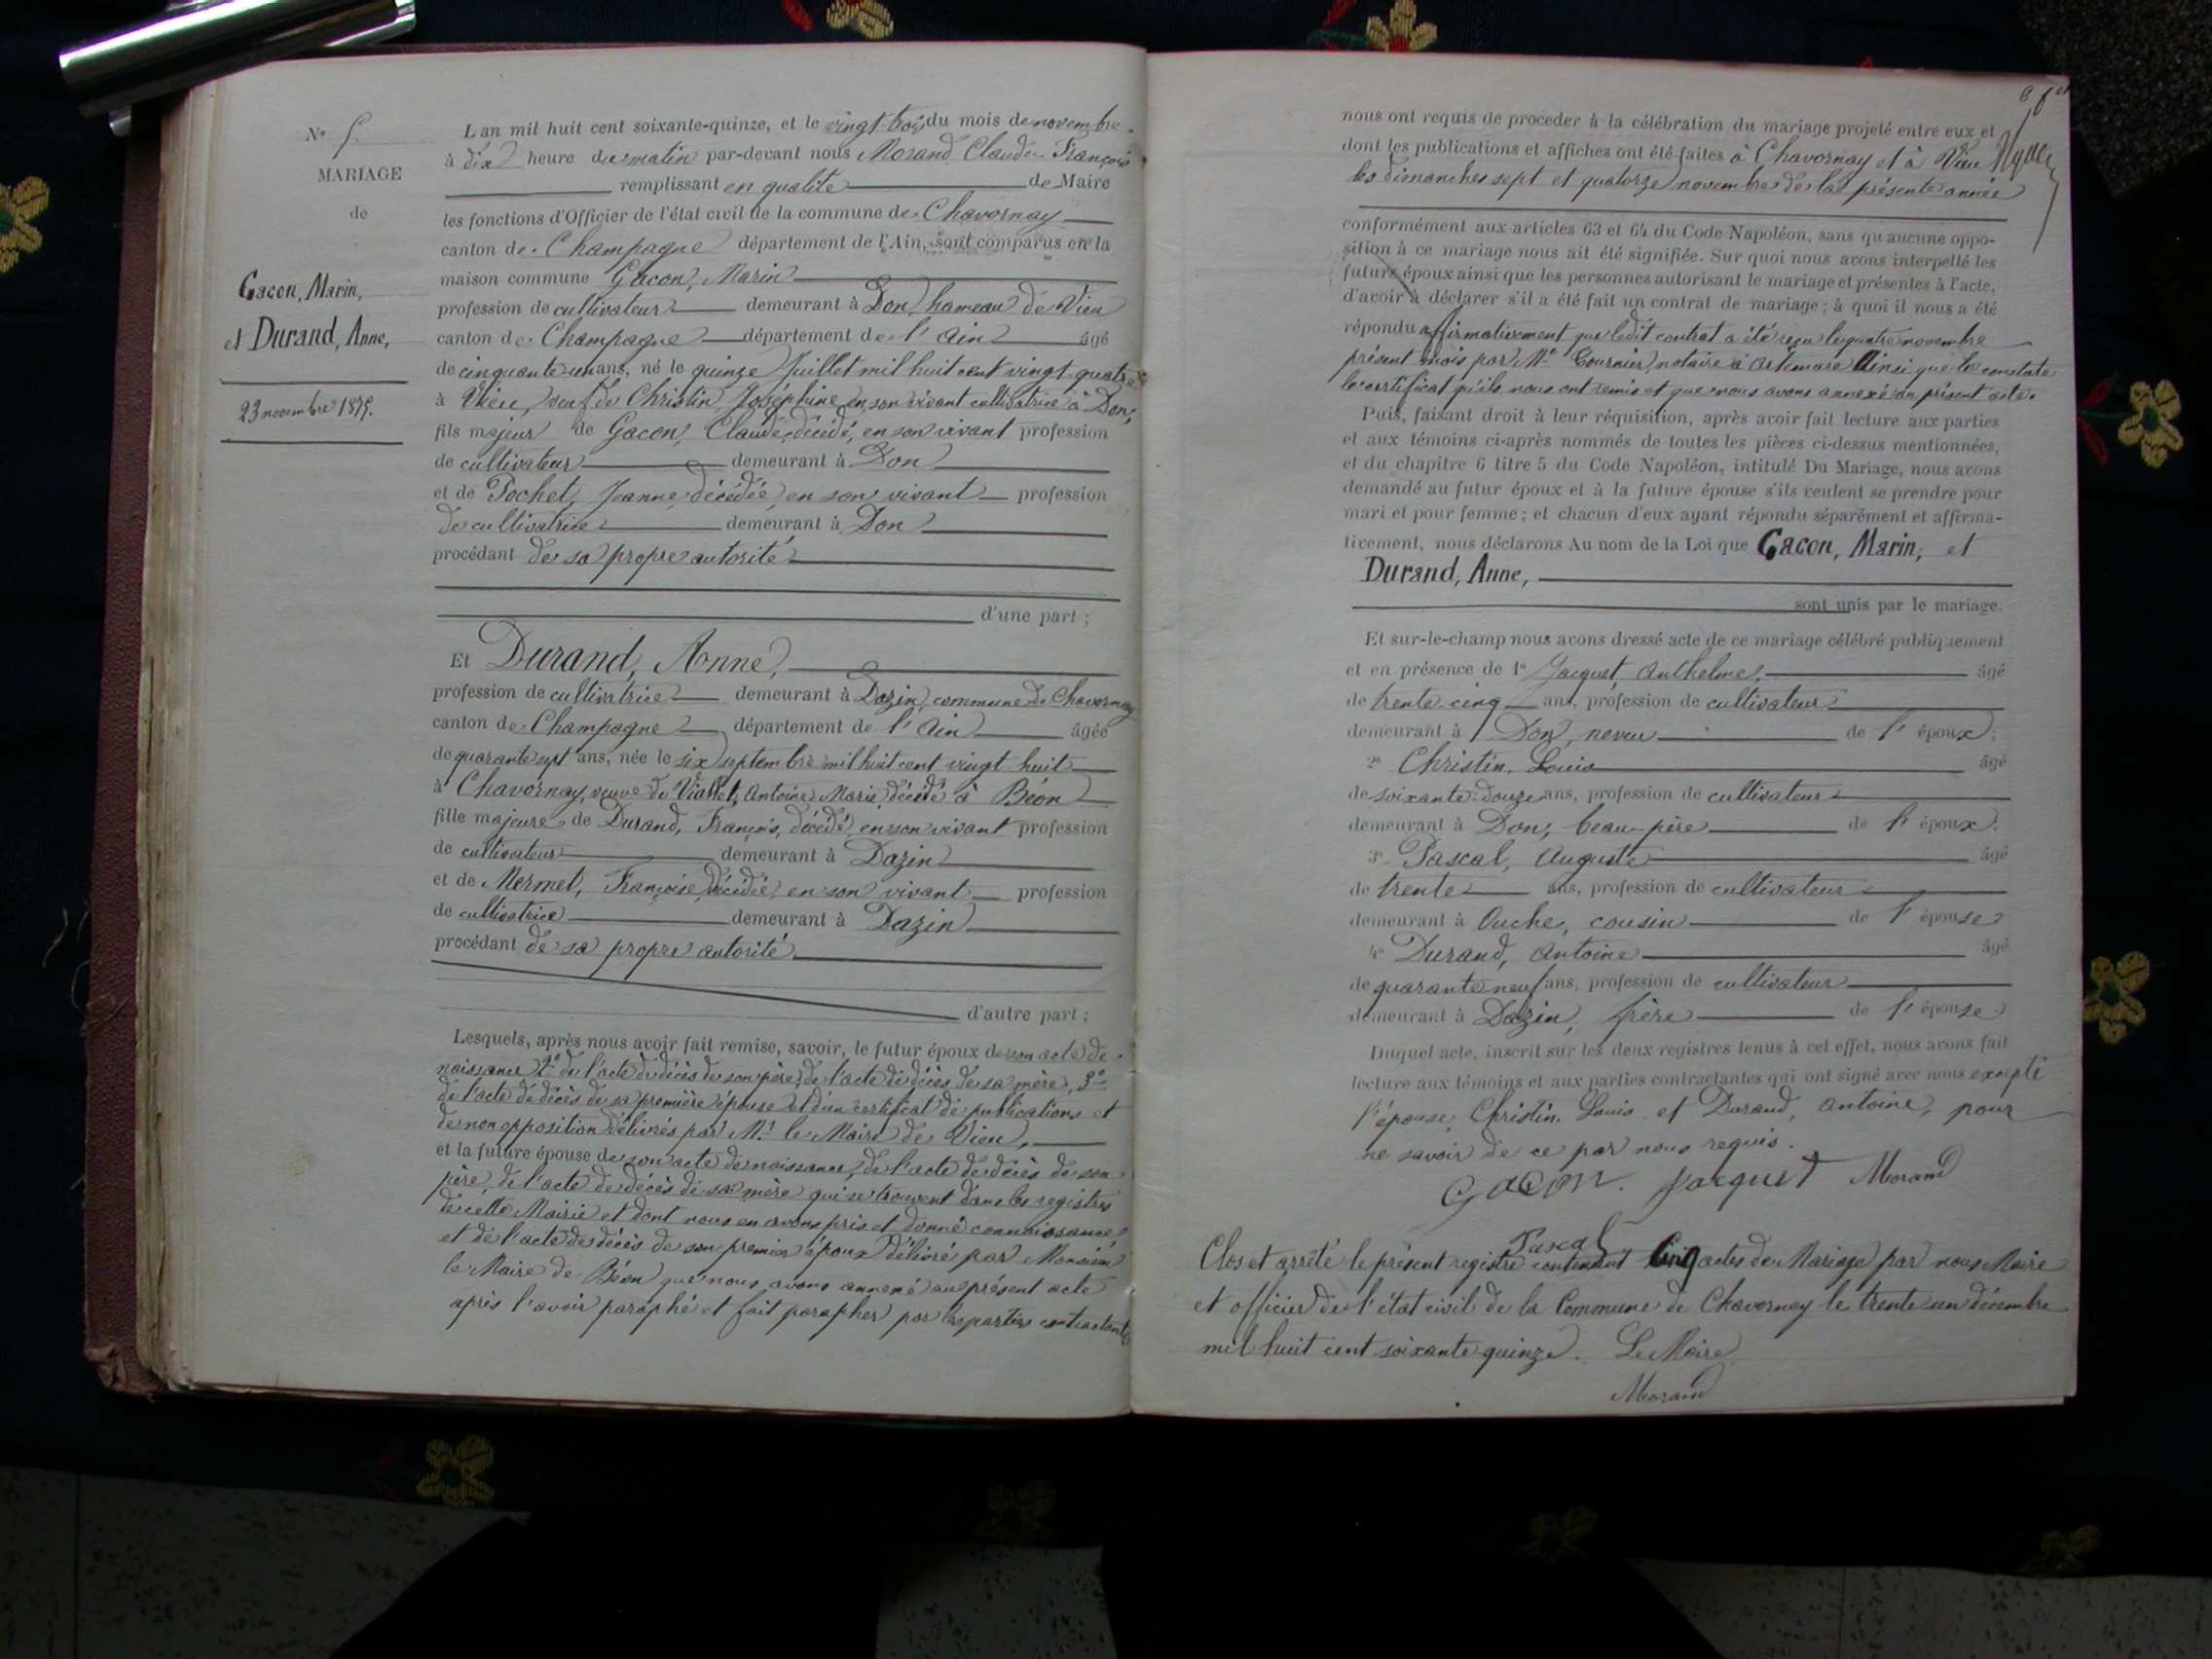 N° 5.
MARIAGE
de
Gacon, Marin,
et Durand, Anne,
23 novembre 1875.
L'an mil huit cent soixante-quinze, et le vingt-trois du mois de novembre
à dix heure du matin par-devant nous Morand Claude-François
remplissant en qualité de Maire
les fonctions d'Officier de l'état civil de la commune de Chavornay
canton de Champagne département de l'Ain, sont comparus en la
maison commune Gacon, Marin
profession de cultivateur demeurant à Don, hameau de Vieu
canton de Champagne département de l'Ain âgé
de cinquante-un ans, né le quinze Juillet mil huit cent vingt-quatre
à Vieu, veuf de Christin, Joséphine, en son vivant cultivatrice à Don,
fils majeur de Gacon, Claude, décédé, en son vivant profession
de cultivateur demeurant à Don
et de Pochet, Jeanne, décédée, en son vivant profession
de cultivatrice demeurant à Don
procédant de sa propre autorité
d'une part ;
Et Durand, Anne,
profession de cultivatrice demeurant à Dazin, commune de Chavornay
canton de Champagne département de l'Ain âgée
de quarante sept ans, née le six septembre mil huit cent vingt-huit
à Chavornay, veuve de Viallet, Antoine Marie, décédé à Béon
fille majeure de Durand, François, décédé, en son vivant profession
de cultivateur demeurant à Dazin
et de Mermet, Françoise, décédée, en son vivant profession
de cultivatrice demeurant à Dazin
procédant de sa propre autorité
d'autre part ;
Lesquels, après nous avoir fait remise, savoir, le futur époux de son acte de
naissance, 2° de l'acte de décès de son père, de l'acte de décès de sa mère, 3°
de l'acte de décès de sa première épouse et d'un certificat de publications et
de non opposition délivrés par Mr le Maire de Vieu,
et la future épouse de son acte de naissance, de l'acte de décès de son
père, de l'acte de décès de sa mère qui se trouvent dans les registres
de cette Mairie et dont nous en avons pris et donné connaissance,
et de l'acte de décès de son premier époux délivré par Monsieur
le Maire de Béon que nous avons annexé au présent acte
après l'avoir paraphé et fait parapher par les parties contractantes
nous ont requis de procéder à la célébration du mariage projeté entre eux et
dont les publications et affiches ont été faites à Chavornay et à Vieu
les dimanches sept et quatorze novembre de la présente année
conformément aux articles 63 et 64 du Code Napoléon, sans qu'aucune oppo-
sition à ce mariage nous ait été signifiée. Sur quoi nous avons interpellé les
futurs époux ainsi que les personnes autorisant le mariage et présentes à l'acte,
d'avoir à déclarer s'il a été fait un contrat de mariage ; à quoi il nous a été
répondu affirmativement que ledit contrat a été reçu le quatre novembre
présent mois par Me Tournier, notaire à Artemare Ainsi que le constate
le certificat qu'ils nous ont remis et que nous avons annexé au présent acte.
Puis, faisant droit à leur réquisition, après avoir fait lecture aux parties
et aux témoins ci-après nommés de toutes les pièces ci-dessus mentionnées,
et du chapitre 6 titre 5 du Code Napoléon, intitulé Du Mariage, nous avons
demandé au futur époux et à la future épouse s'ils veulent se prendre pour
mari et pour femme ; et chacun d'eux ayant répondu séparément et affirma-
tivement, nous déclarons Au nom de la Loi que Gacon, Marin, et
Durand, Anne,
sont unis par le mariage.
Et sur-le-champ nous avons dressé acte de ce mariage célébré publiquement
et en présence de 1° Jacquet, Anthelme, âgé
de trente-cinq ans, profession de cultivateur
demeurant à Don, neveu de l'époux ;
2° Christin, Louis âgé
de soixante-douze ans, profession de cultivateur
demeurant à Don, beau-père de l'époux.
3° Pascal, Auguste âgé
de trente ans, profession de cultivateur
demeurant à Ouche, cousin de l'épouse
4° Durand, Antoine âgé
de quarante neuf ans, profession de cultivateur
demeurant à Dazin, frère de l'épouse
Duquel acte, inscrit sur les deux registres tenus à cet effet, nous avons fait
lecture aux témoins et aux parties contractantes qui ont signé avec nous excepté
l'épouse, Christin, Louis et Durand, Antoine, pour
ne savoir de ce par nous requis.
Gacon. Jacquet Morand
Pascal
Clos et arrêté le présent registre contenant Cinq actes de Mariage par nous Maire
et officier de l'état civil de la Commune de Chavornay le trente un décembre
mil huit cent soixante quinze. Le Maire
Morand